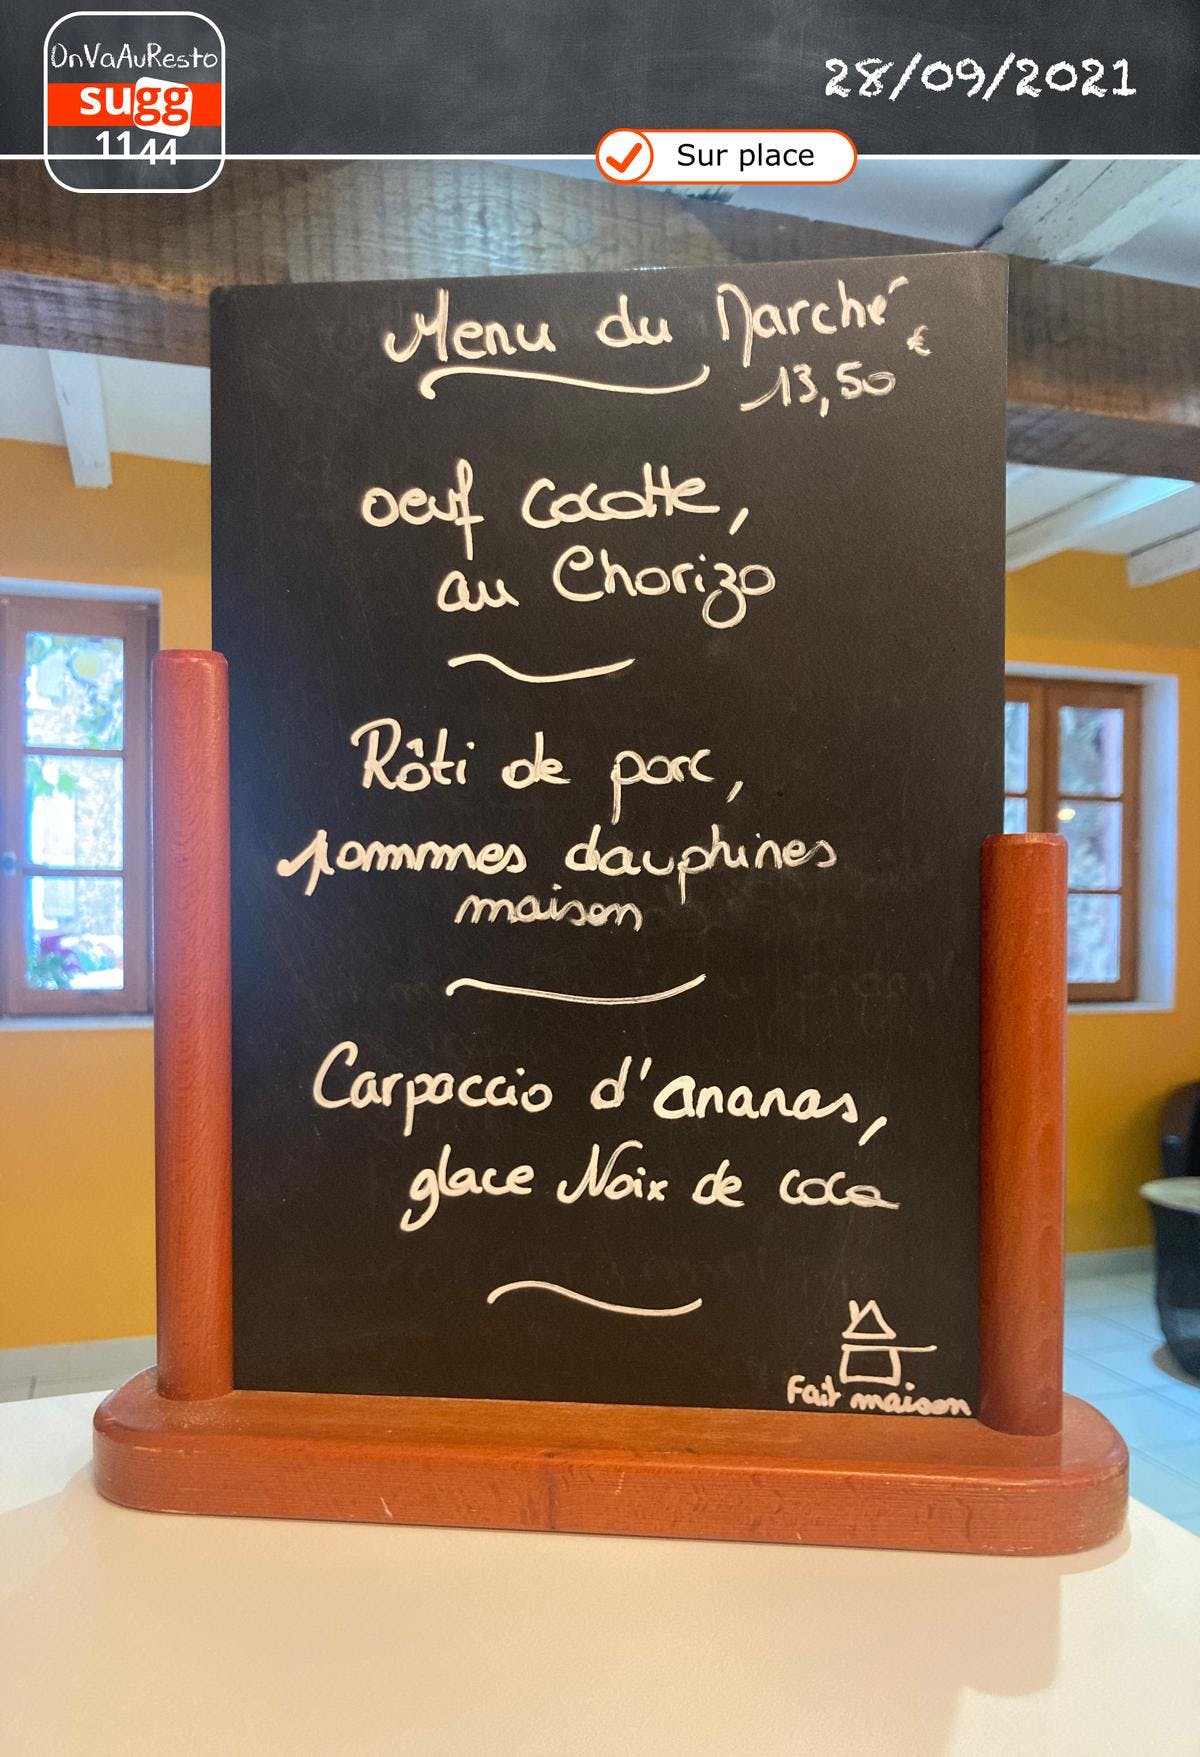 OnVaAuResto
sugg
1144
28/09/2021
Sur place
Menu du Marché
13,50 €
oeuf cocotte,
au Chorizo
Rôti de porc,
pommes dauphines
maison
Carpaccio d'ananas,
glace Noix de coco
Fait maison